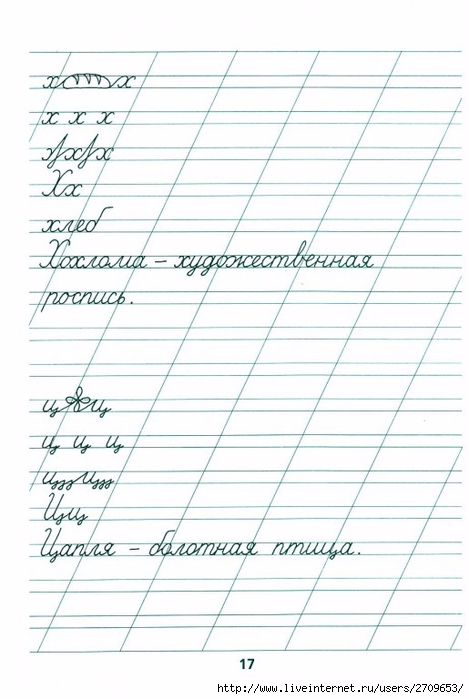 х х
х х х
х х х
Хх
хлеб
Хохлома – художественная
роспись.
ц ц
ц ц ц
ц ц
Цц
Цапля – болотная птица.
17
http://www.liveinternet.ru/users/2709653/